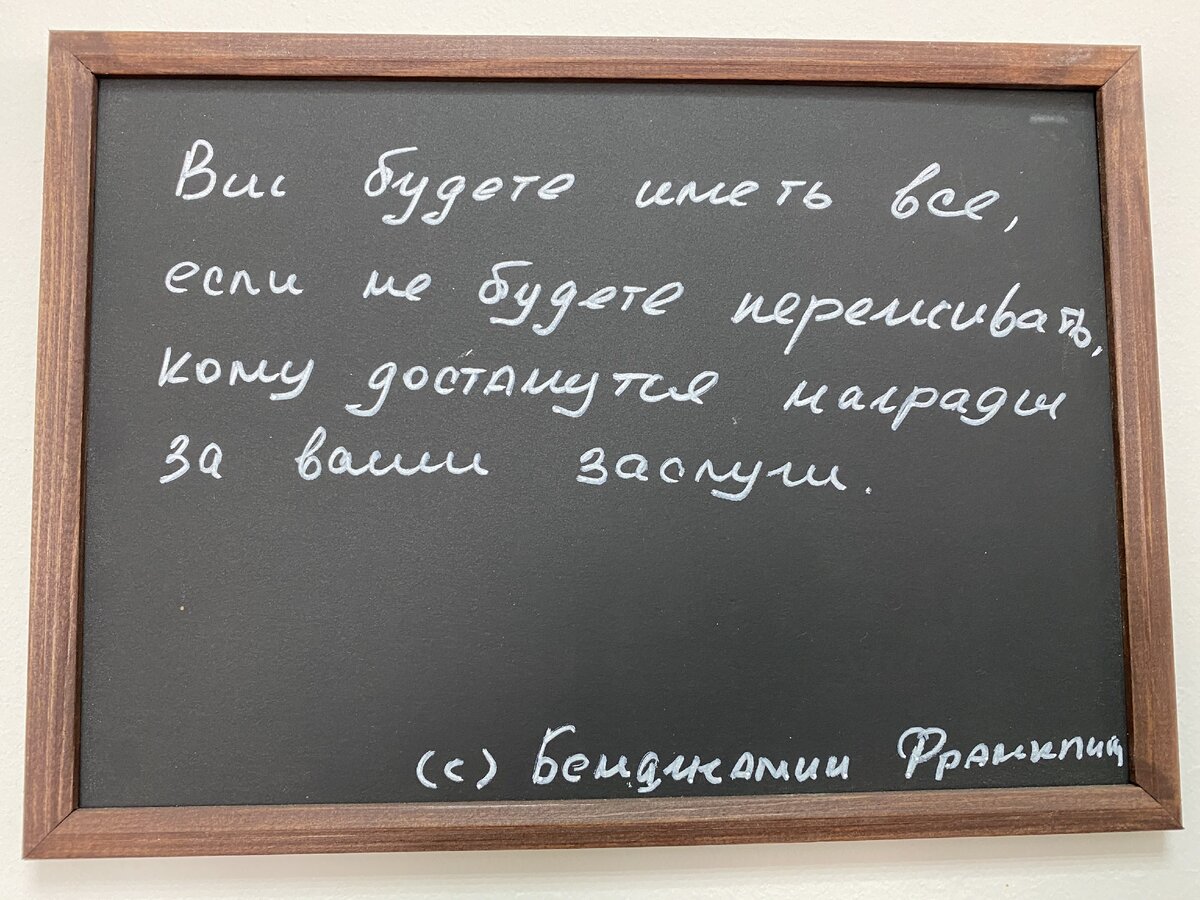 Вы будете иметь все,
если не будете переживать,
кому достанутся награды
за ваши заслуги.
(с) Бенджамин Франклин